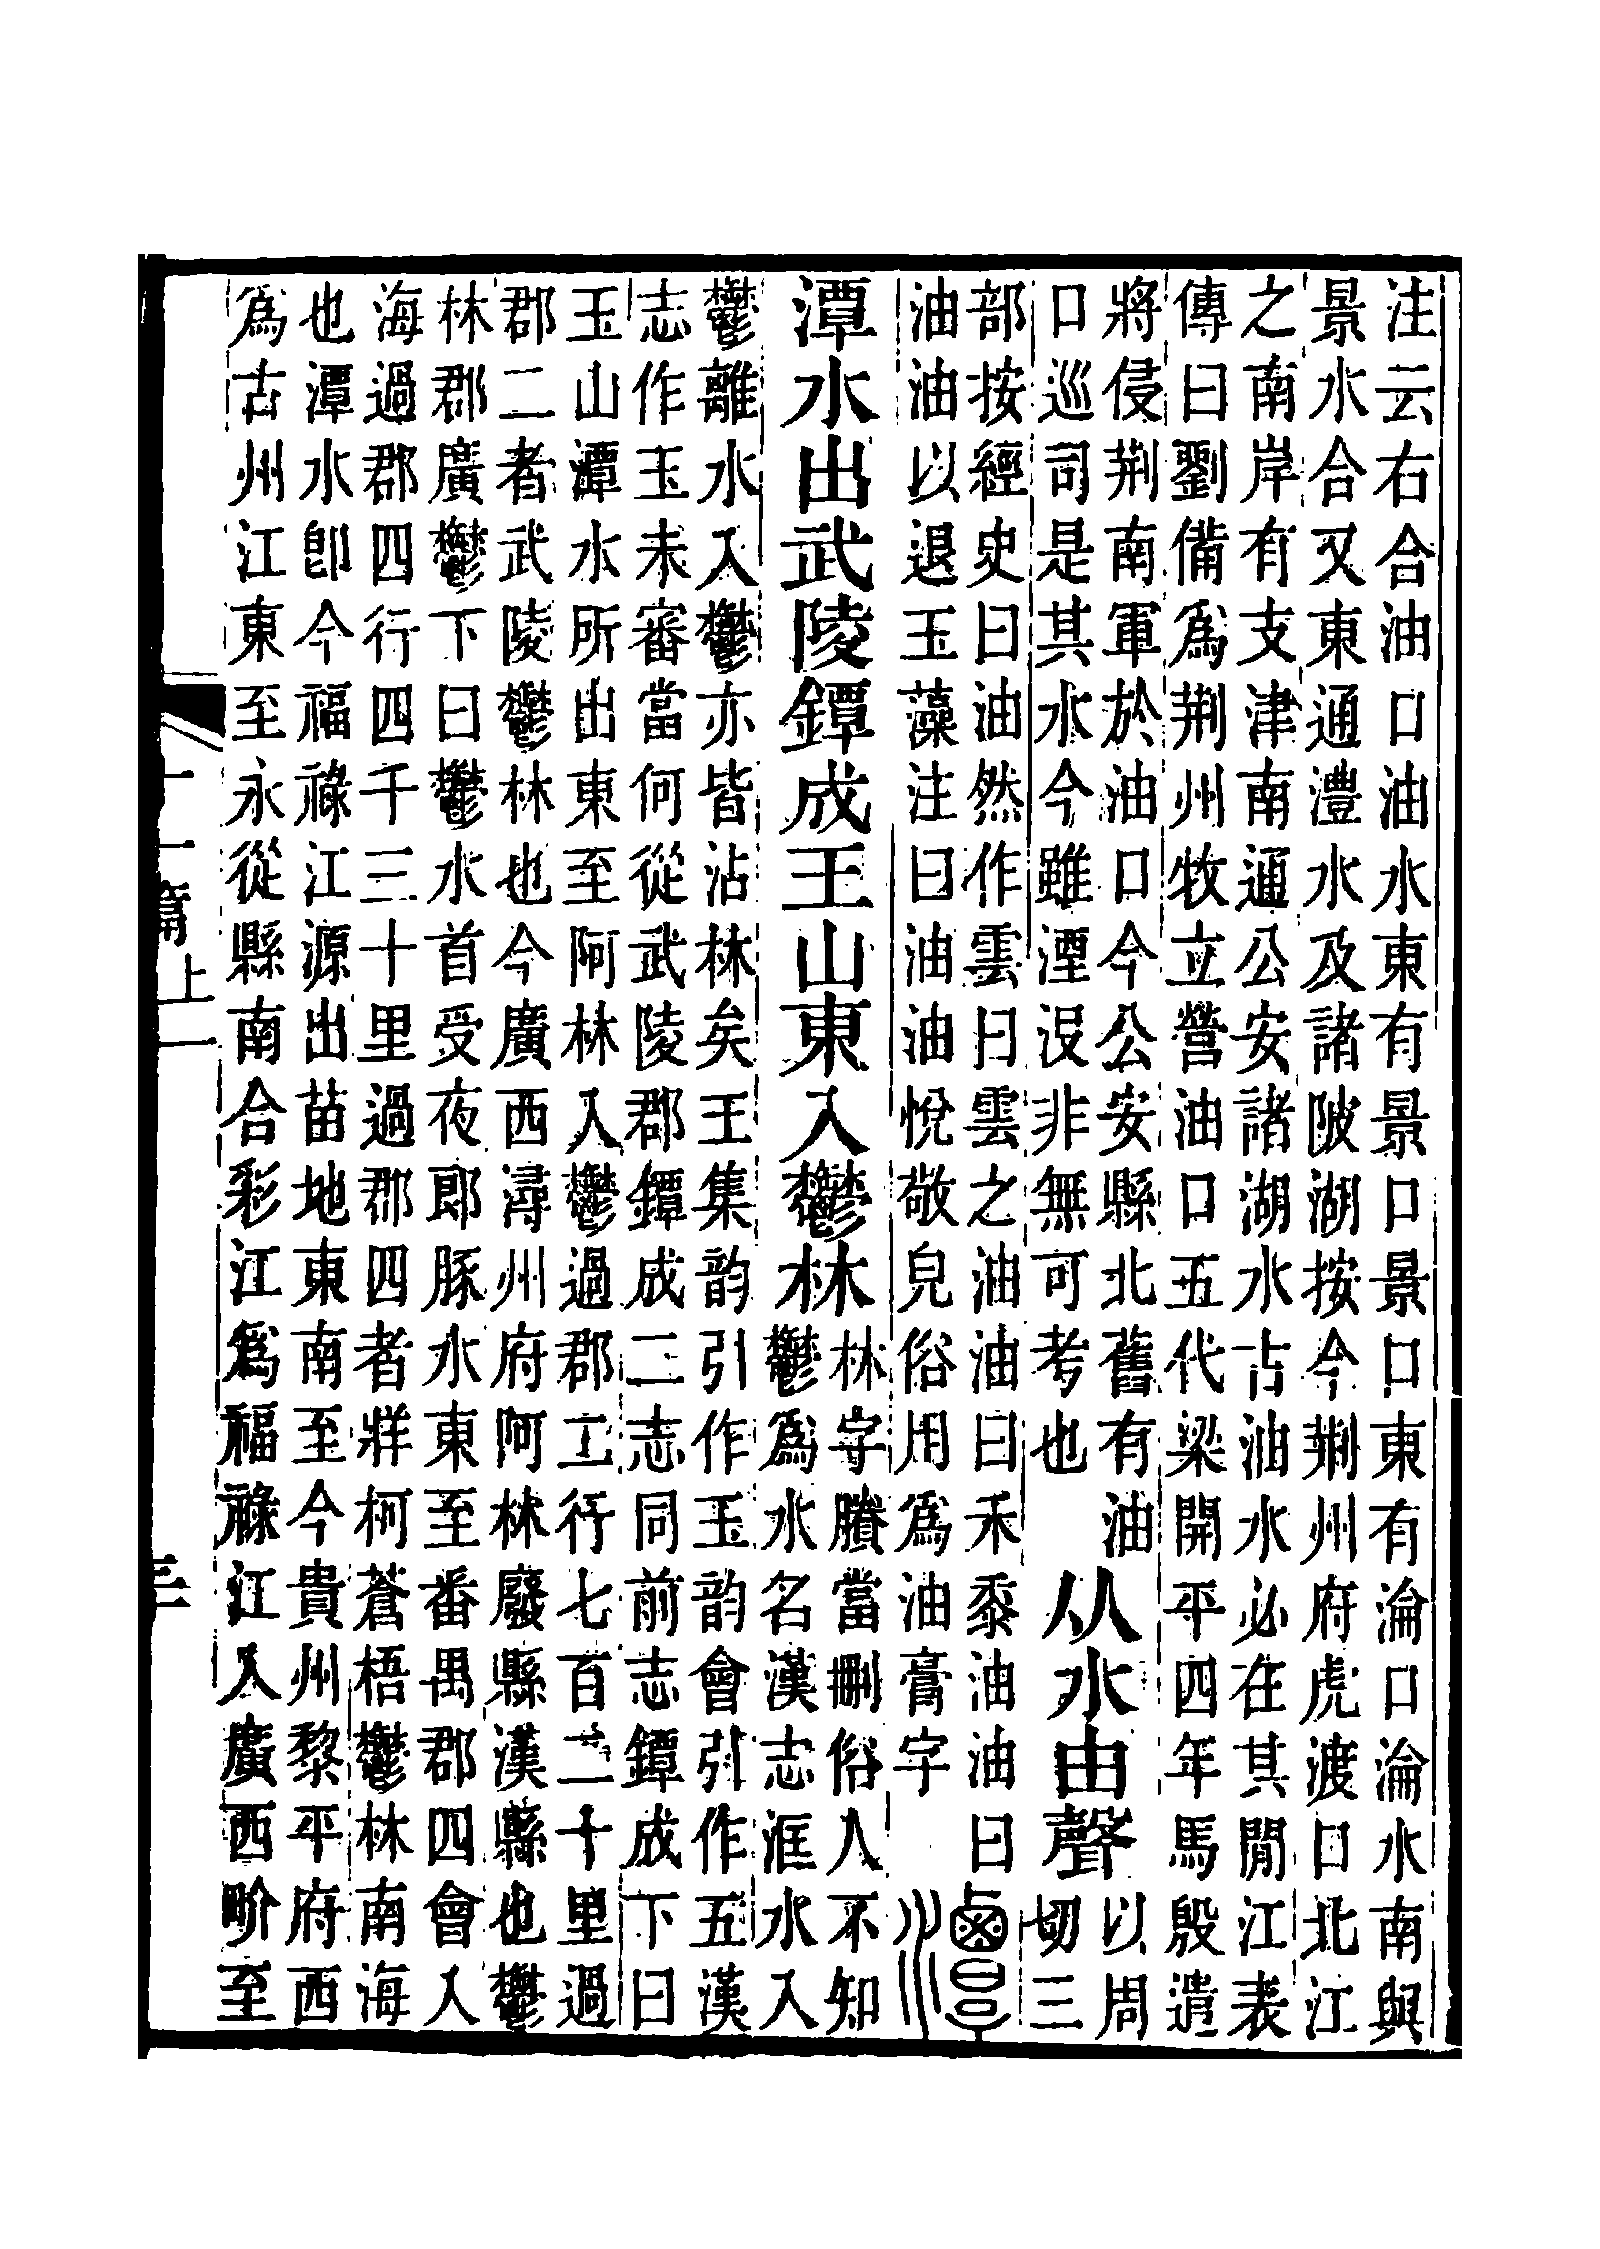 注云右合油口油水東有景口景口東有淪口淪水南與
景水合又東通澧水及諸陂湖按今荆州府虎渡口北江
之南岸有支津南通公安諸湖水古油水必在其閒江表
傳曰劉備爲荆州牧立營油口五代梁開平四年馬殷遣
將侵荆南軍於油口今公安縣北舊有油
口巡司是其水今雖湮沒非無可考也
从水由聲
以周
切三
部按經史曰油然作雲曰雲之油油曰禾黍油油曰
油油以退玉藻注曰油油悅敬皃俗用爲油膏字
潭水出武陵鐔成王山東入鬱林
林字賸當刪俗人不知
鬱爲水名漢志洭水入
鬱離水入鬱亦皆沾林矣王集韵引作玉韵會引作五漢
志作玉未審當何從武陵郡鐔成二志同前志鐔成下曰
玉山潭水所出東至阿林入鬱過郡二行七百二十里過
郡二者武陵鬱林也今廣西潯州府阿林廢縣漢縣也鬱
林郡廣鬱下曰鬱水首受夜郎豚水東至番禺郡四會入
海過郡四行四千三十里過郡四者牂柯蒼梧鬱林南海
也潭水卽今福祿江江源出苗地東南至今貴州黎平府西
爲古州江東至永從縣南合彩江爲福祿江入廣西畍至
十一篇上一